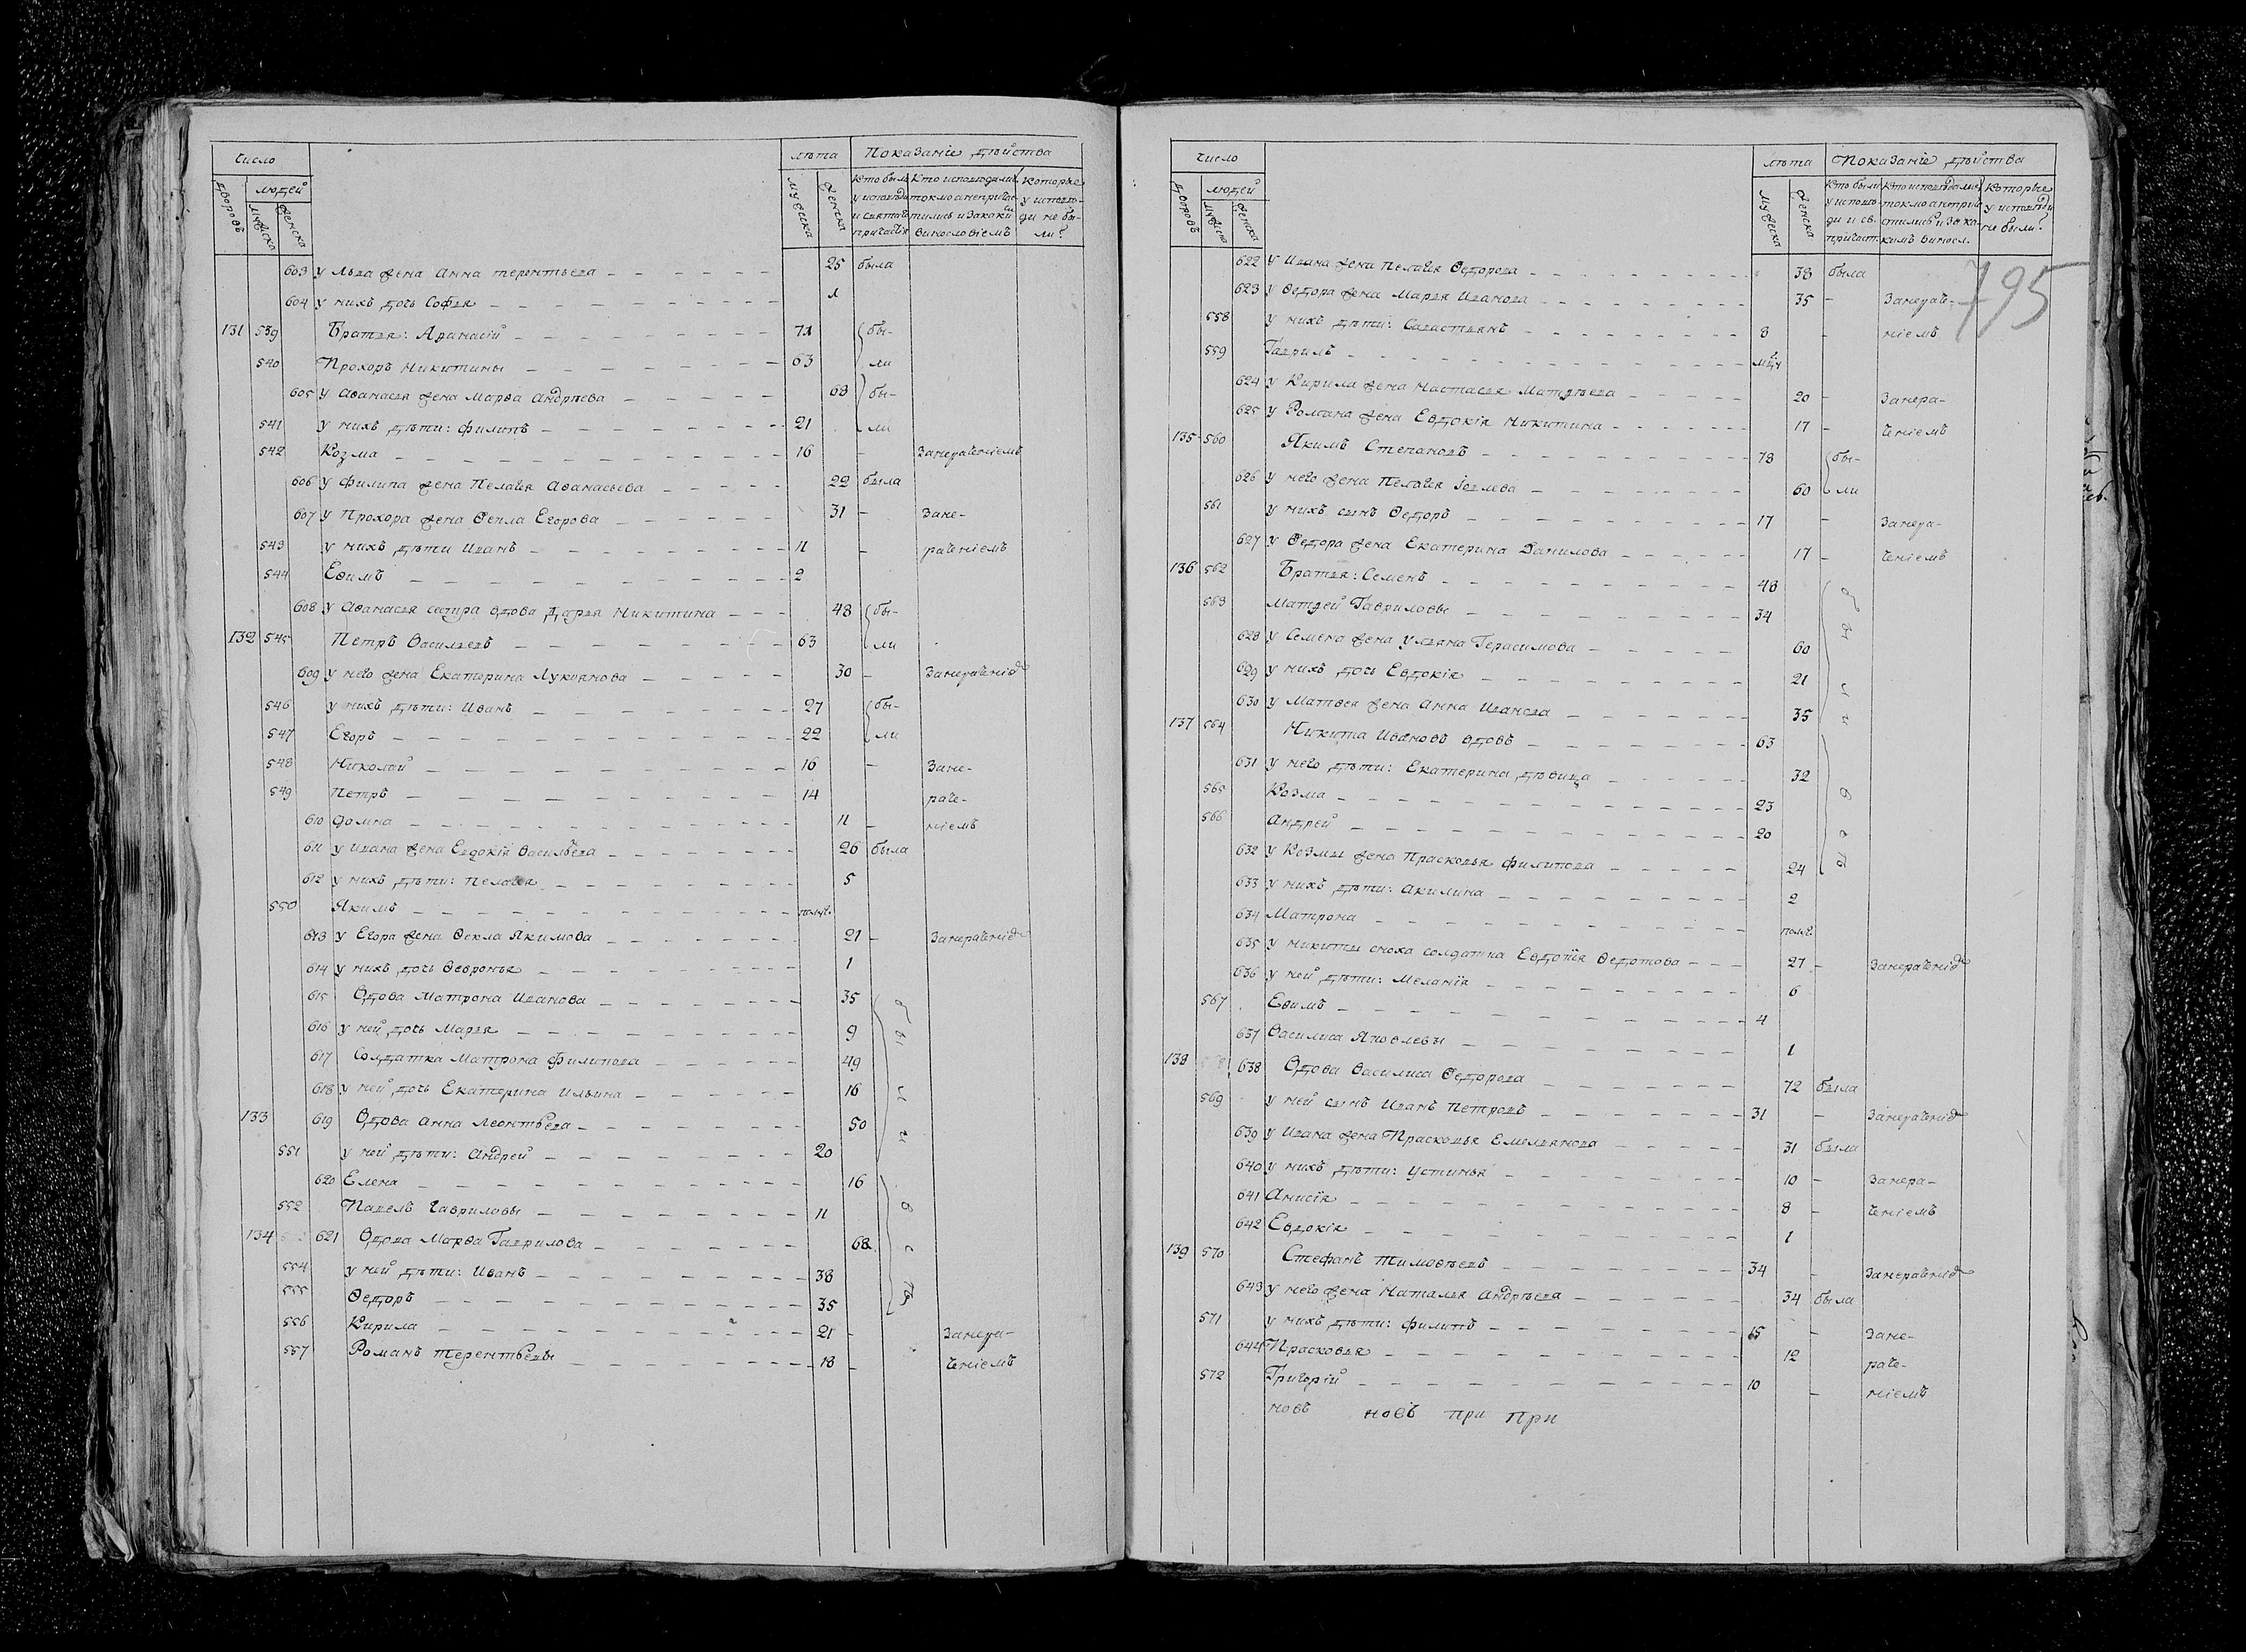 число
лѣта
Показаніе дѣйства
дворовъ
людей
мужеска
женска
мужеска
женска
Кто были у исповѣди и святаго причастія
Кто исповѣдались токмо а не причастились и за какимъ винословіемъ
Которые у исповѣди не были?
603 у Льва жена Анна Терентьева 25 была
604 у нихъ дочь Софья 1
131 539 Братья: Афанасій 71 бы-
540 Прохоръ Никитины 63 ли
605 у Афанасья жена Марфа Андрѣева 68 бы-
541 у нихъ дѣти: Филипъ 21 ли
542 Козма 16 - Занераченіемъ
606 у Филипа жена Пелагея Афанасьева 22 была
607 у Прохора жена Фекла Егорова 31 - Зане-
543 у нихъ дѣти Иванъ 11 - раченіемъ
544 Ефимъ 2
608 у Афанасья сестра вдова Дарья Никитина 48 бы-
132 545 Петръ Васильевъ 63 ли
609 у него жена Екатерина Лукиянова 30 - Занераченіе
546 у нихъ дѣти: Иванъ 27 бы-
547 Егоръ 22 ли
548 Николай 16 - Зане-
549 Петръ 14 раче-
610 Домна 11 - ніемъ
611 у Ивана жена Евдокія Васильева 26 была
612 у нихъ дѣти: Пелагея 5
550 Якимъ полуг.
613 у Егора жена Фекла Якимова 21 - Занераченіе
614 у нихъ дочь Февронья 1
615 Вдова Матрона Иванова 35
616 у ней дочь Марья 9
617 Солдатка Матрона Филипова 49
618 у ней дочь Екатерина Ильина 16
133 619 Вдова Анна Леонтьева 50
551 у ней дѣти: Андрей 20
620 Елена 16
552 Павелъ Гавриловы 11
134 621 Вдова Марфа Гаврилова 68
554 у ней дѣти: Иванъ 38
555 Федоръ 35
556 Кирила 21 - Занера-
557 Романъ Терентьевы 18 - ченіемъ
были
число
лѣта
Показаніе дѣйства
дворовъ
людей
мужеска
женска
мужеска
женска
Кто были у исповѣди и св. причаст.
Кто исповѣдались токмо а не причастились и за какимъ виносл.
Которые у исповѣди не были?
795
622 у Ивана жена Пелагея Федорова 38 была
623 у Федора жена Марья Иванова 35 - Занераче-
558 у нихъ дѣти: Савастьянъ 8 - ніемъ
559 Гаврилъ
624 у Кирила жена Настасья Матвѣева 20 - Занера-
625 у Романа жена Евдокія Никитина 17 - ченіемъ
135 560 Якимъ Степановъ 78 бы-
626 у него жена Пелагея Іевлева 60 ли
561 у нихъ сынъ Федоръ 17 - Занера-
627 у Федора жена Екатерина Данилова 17 - ченіемъ
136 562 Братья: Семенъ 48
563 Матвей Гавриловы 34
628 у Семена жена Ульяна Герасимова 60
629 у нихъ дочь Евдокія 21
630 у Матвея жена Анна Иванова 35
были
137 564 Никита Ивановъ вдовъ 63
631 у него дѣти: Екатерина дѣвица 32
565 Козма 23
566 Андрей 20
632 у Козмы жена Прасковья Филипова 24
633 у нихъ дѣти: Акилина 2
634 Матрона полуг.
635 у Никиты сноха солдатка Евдокія Федотова 27 - Занераченіе
636 у ней дѣти: Меланія 6
567 Ефимъ 4
637 Василиса Яковлевы 1
138 638 Вдова Василиса Федорова 72 была
569 у ней сынъ Иванъ Петровъ 31 - Занераченіе
639 у Ивана жена Прасковья Емельянова 31 была
640 у нихъ дѣти: Устинья 10 - Занера-
641 Анисія 8 - ченіемъ
642 Евдокія 1
139 570 Стефанъ Тимофѣевъ 34 - Занераченіе
643 у него жена Наталья Андрѣева 34 была
571 у нихъ дѣти: Филипъ 15 - Зане-
644 Прасковья 12 раче-
572 Григорій 10 - ніемъ
новъ новъ при при